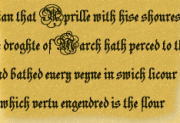 an that Aprille with hise shoures
droghte of March hath perced to th
d bathed euery veyne in swich licour
which vertu engendred is the flour